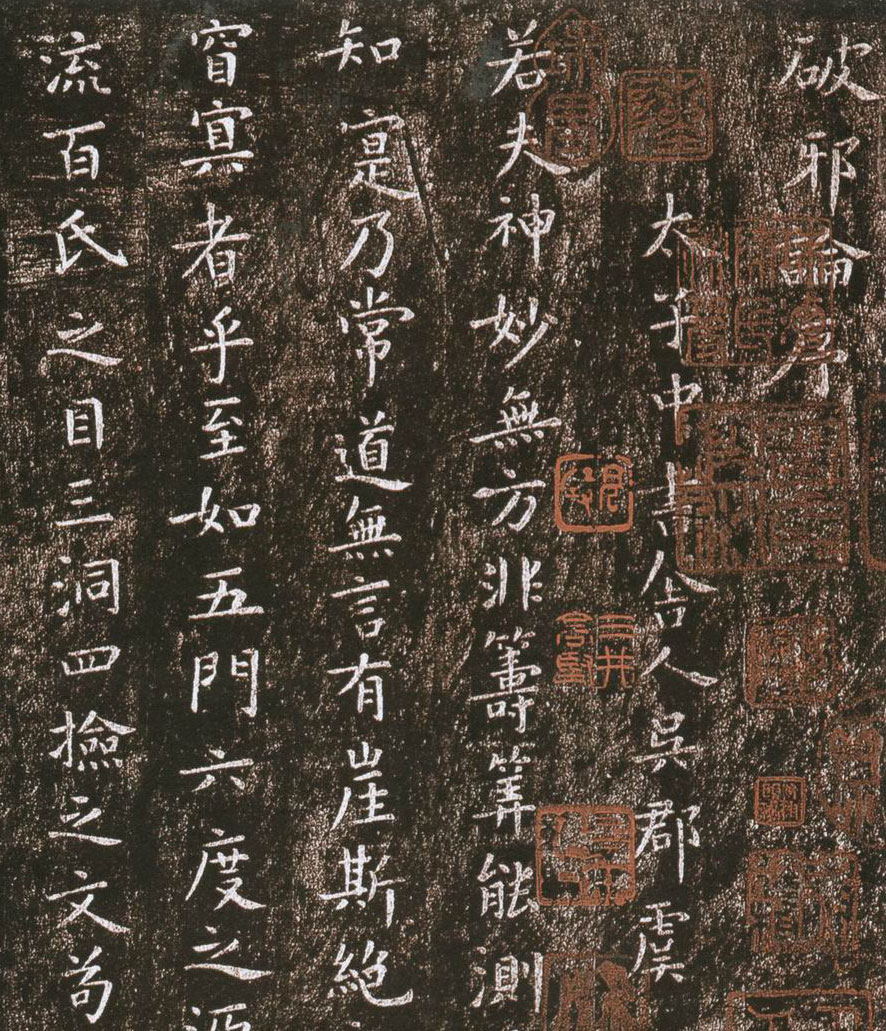 破邪論序
太子中書舍人吳郡虞
若夫神妙無方非籌筭能測
知寔乃常道無言有崖斯絕
窅寘者乎至如五門六度之源
流百氏之目三洞四撿之文苟